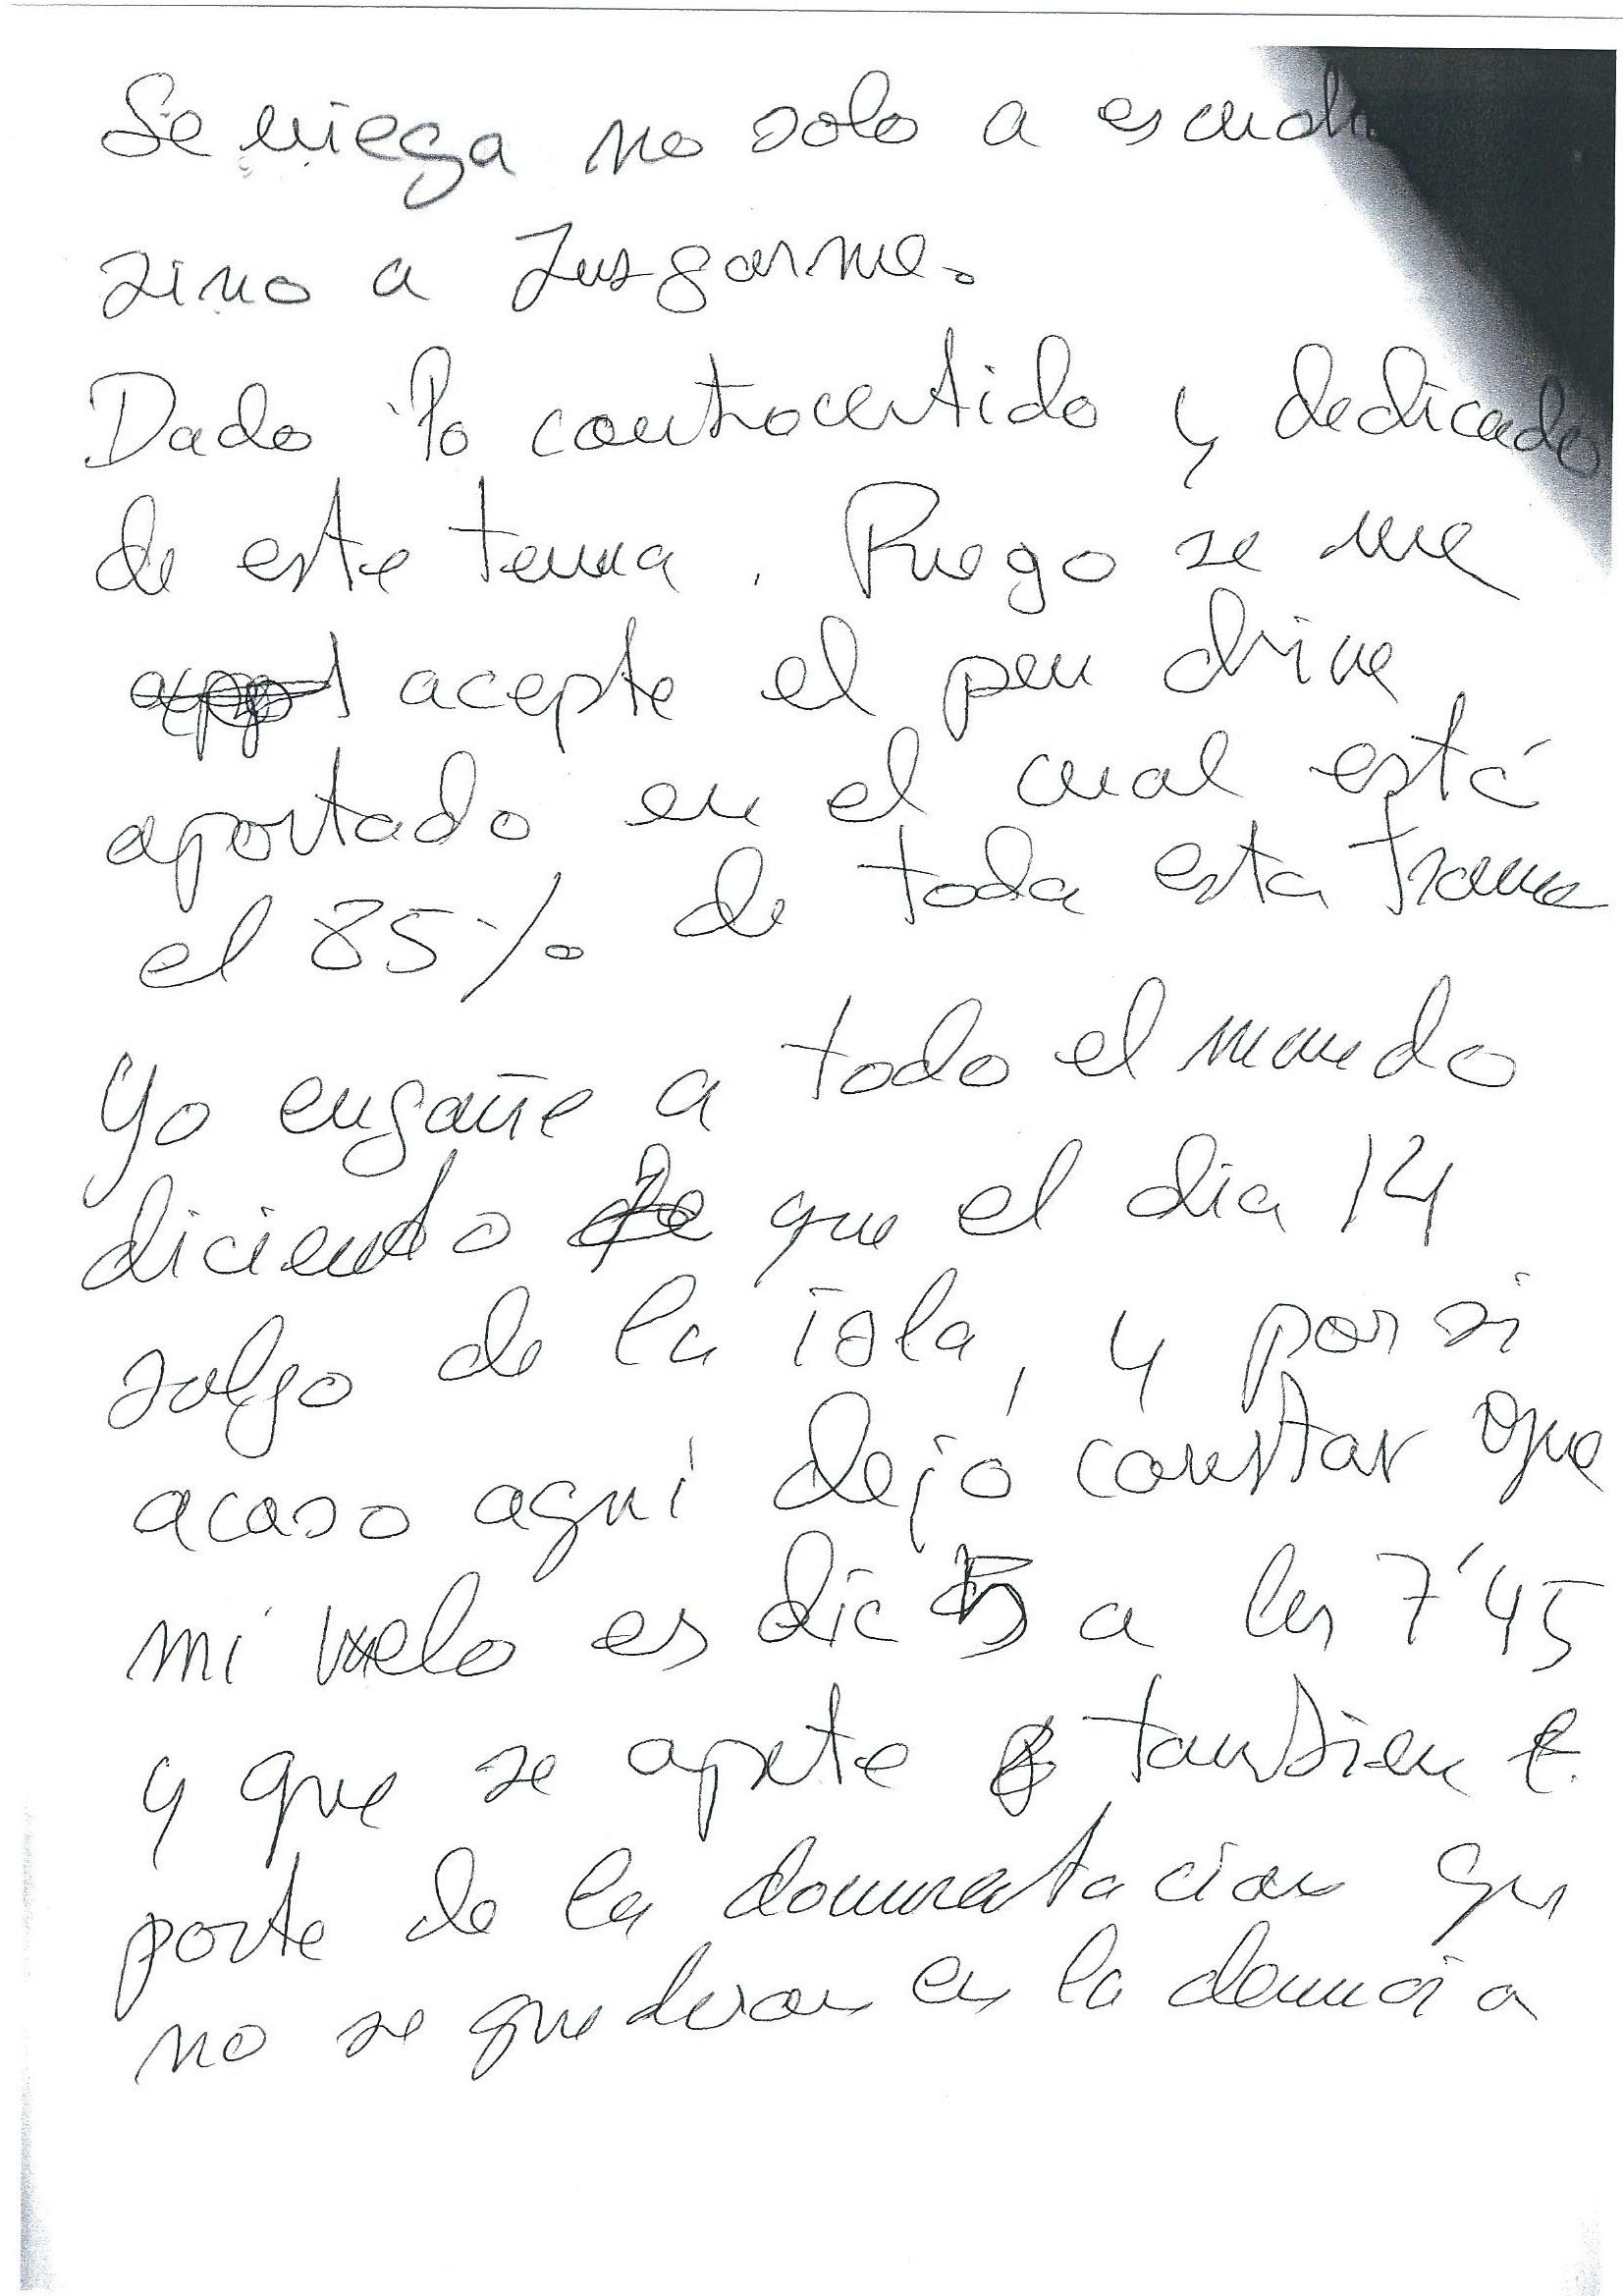 Se niega no solo a
sino a Juzgarme.
Dado lo controcertido y dedicado
de este tema. Ruego se me
acepte el pen drive
aportado en el cual está
el 85% de toda esta trama
Yo engañe a todo el mundo
diciendo que el dia 14
salgo de la isla, y por si
acaso aquí dejó constar que
mi vuelo es dic 15 a las 7'45
y que se apate tambien
parte de la documentacion que
no se quedaron en la denuncia